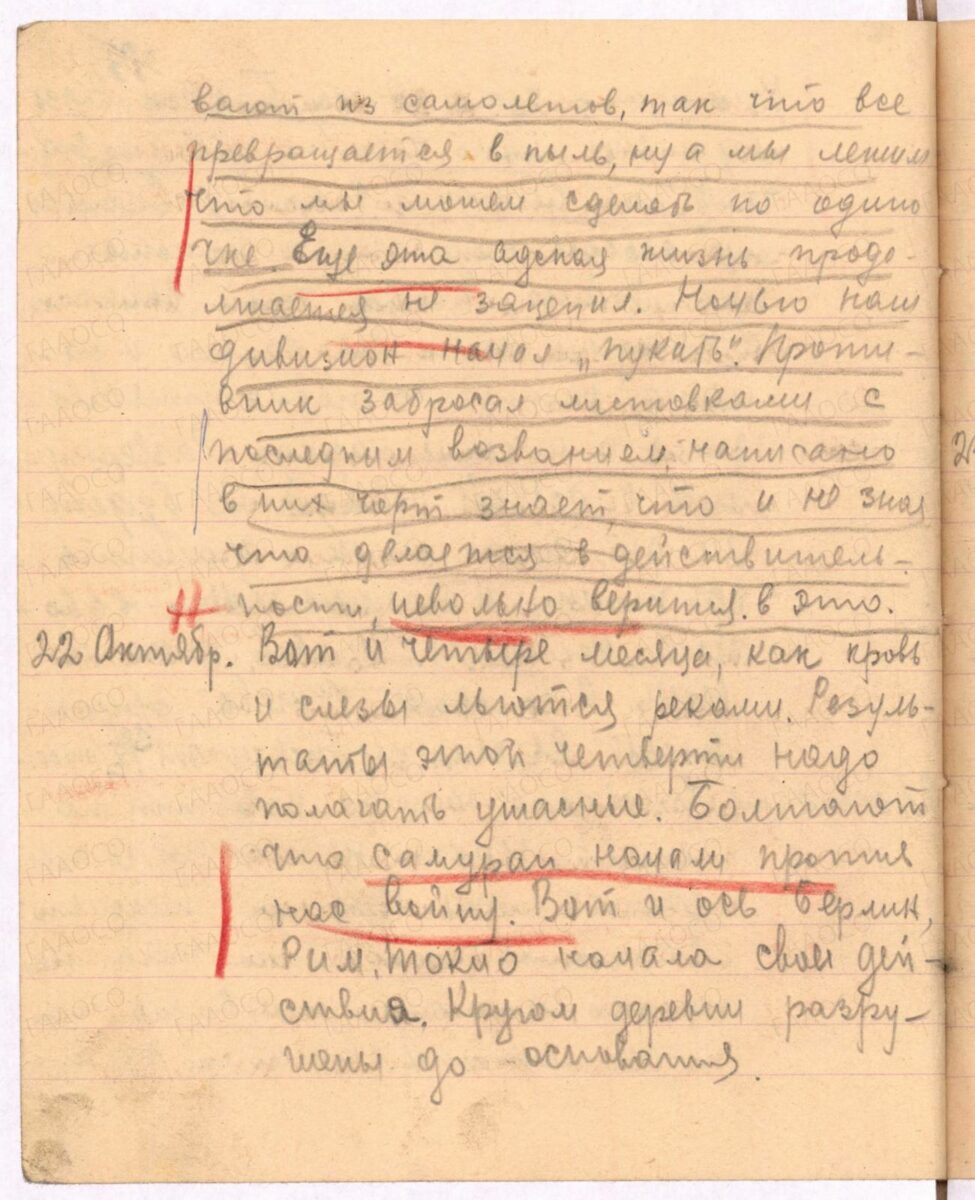 вают из самолетов, так что все
превращается в пыль, ну а мы лежим
что мы можем сделать по одино
чке. Еще эта адская жизнь продо-
лжается не зацепил. Ночью наш
дивизион начал „пукать". Проти-
вник забросал листовками с
последним возванием, написано
в них черт знает, что и не зная
что делается в действитель-
ности, невольно верится в это.
22 Октябр. Вот и четыре месяца, как кровь
и слезы льются реками. Резуль-
таты этой четверти надо
полагать ужасные. Болтают
что самураи начали против
нас войну. Вот и ось Берлин,
Рим, Токио начала свои дей-
ствия. Кругом деревни разру-
шены до основания.